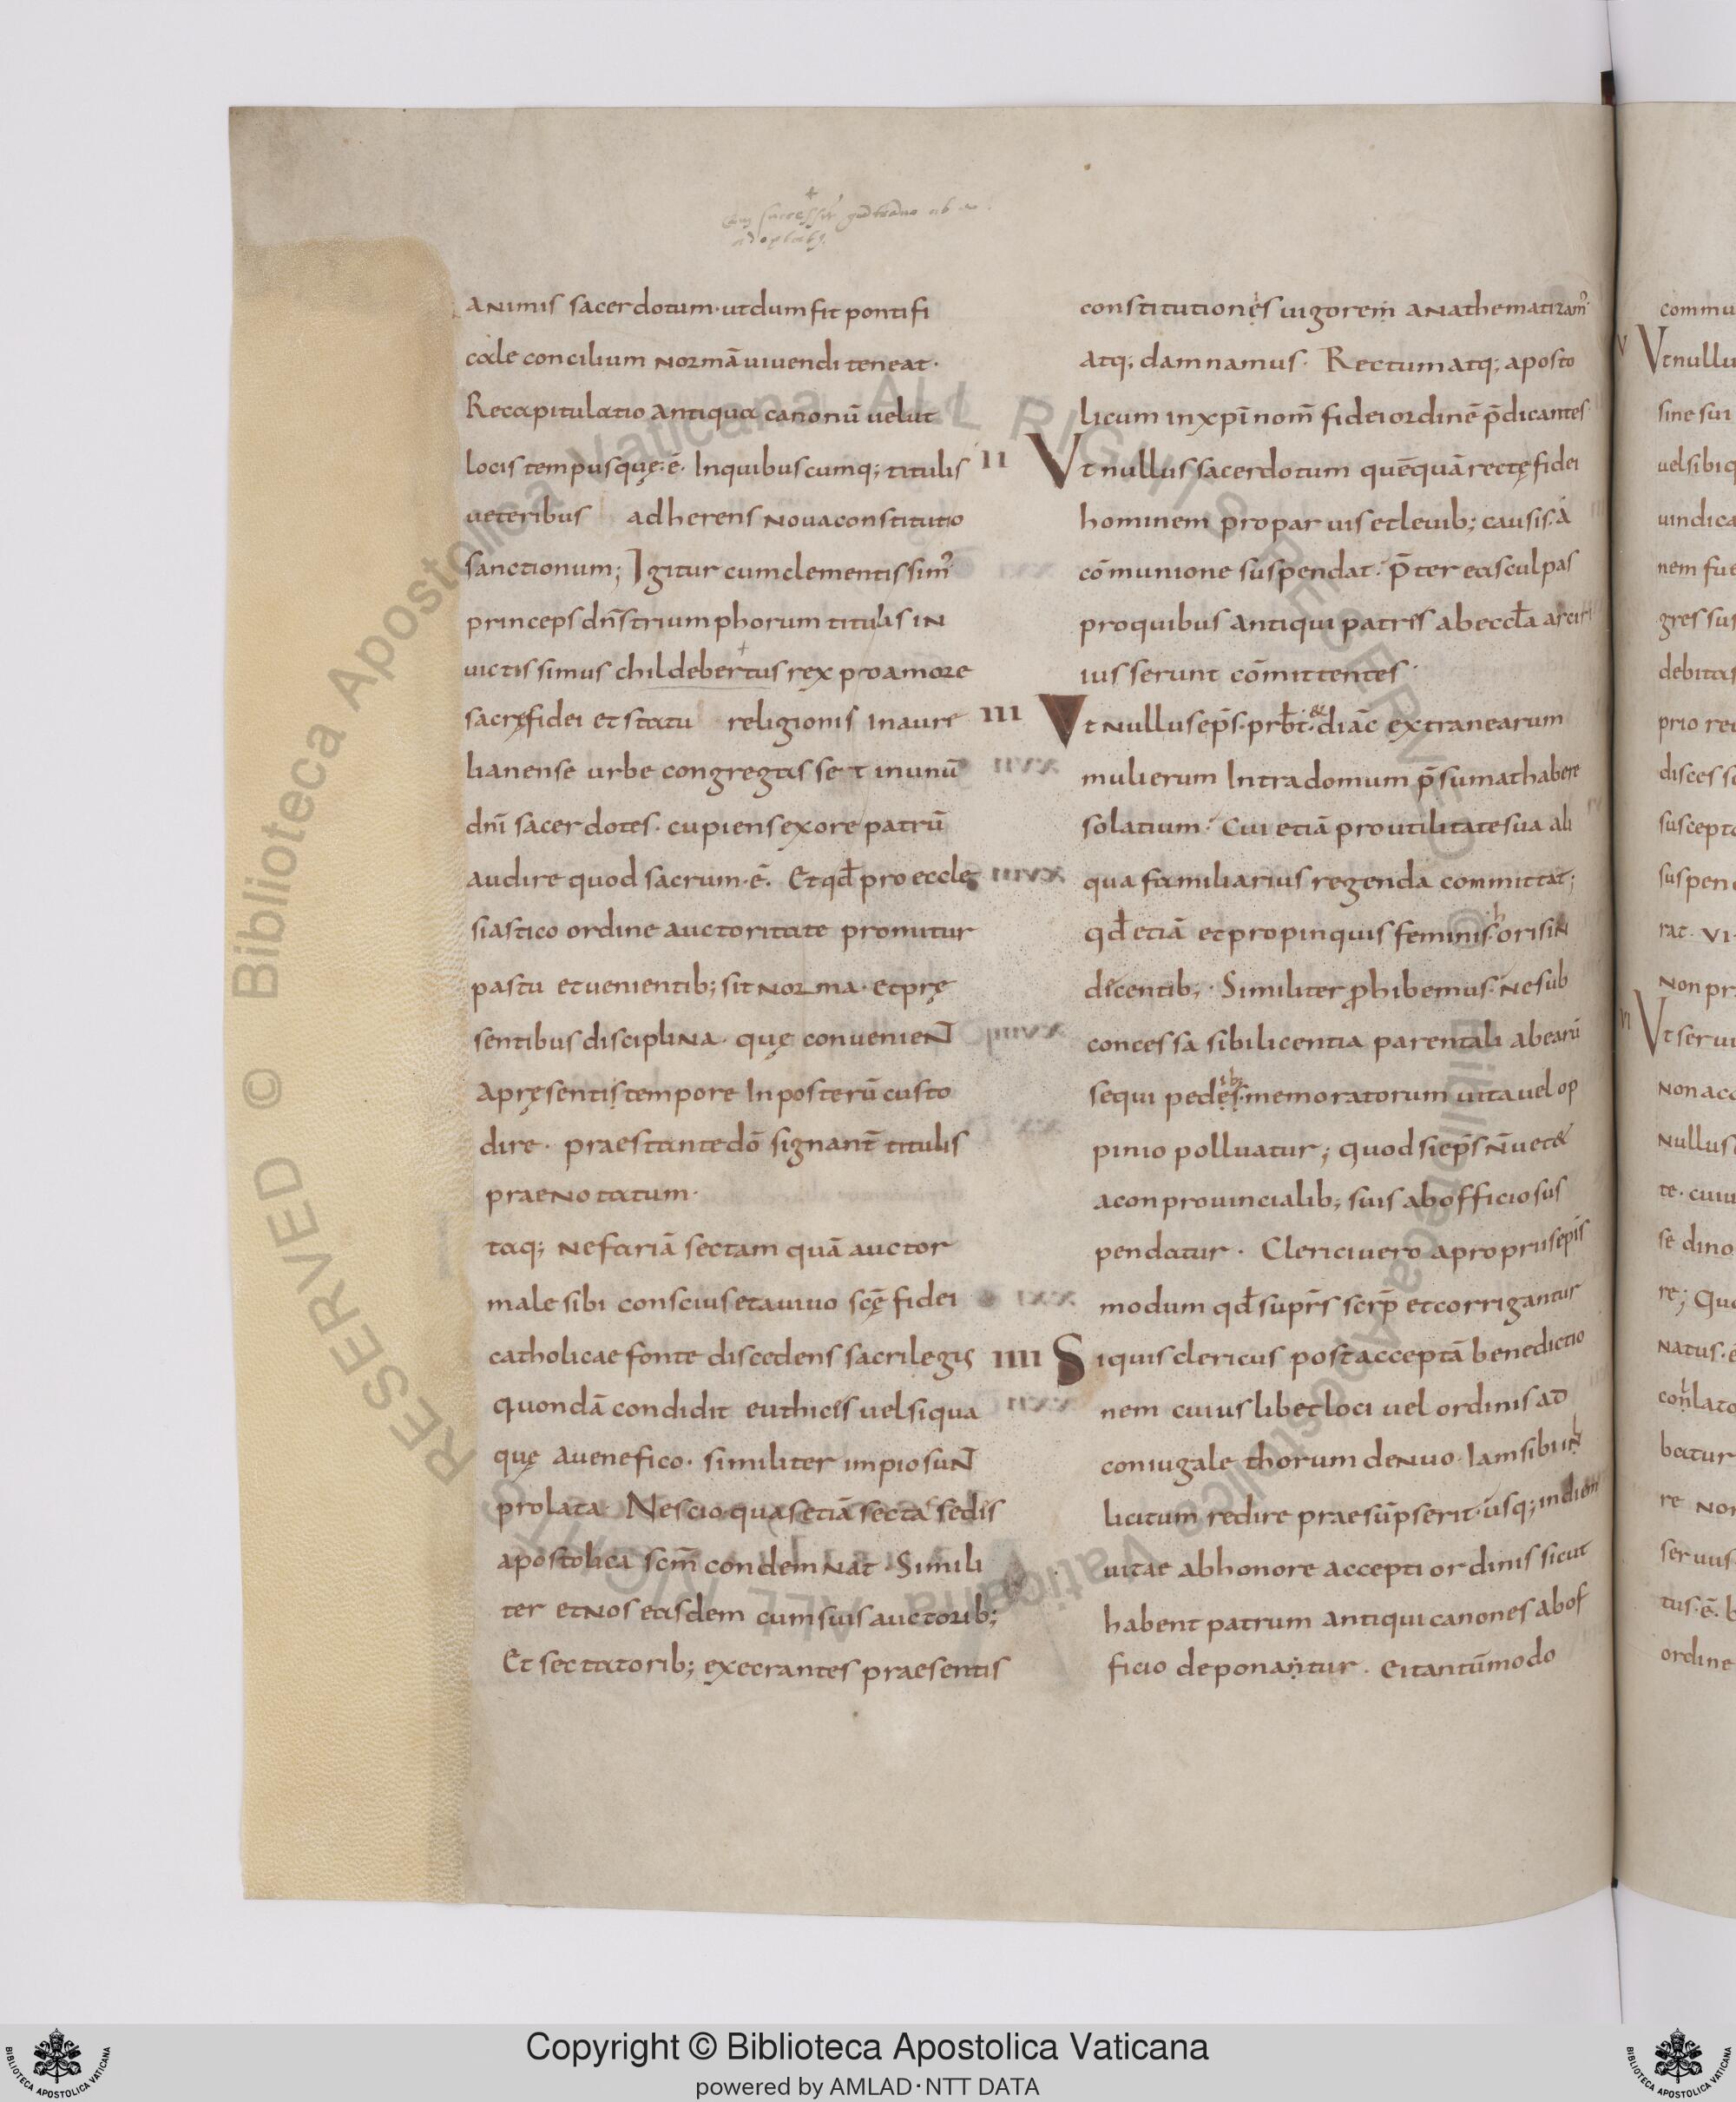 animis sacerdotum · ut dum fit pontifi
cale concilium normā uiuendi teneat ·
Recapitulatio antiqua canonū uelut
locis tempusquę; ē · In quibuscumq; titulis
ueteribus adherens noua constitutio
sanctionum; Igitur cum clementissim᾿
princeps dn̄s triumphorum titulis in
uictissimus childebertus rex pro amore
sacrę fidei et statu religionis in aure
lianense urbe congregasset in unū
dn̄i sacerdotes · cupiens ex ore patrū
audire quod sacrum · ē · Et qd̄ pro eccle
siastico ordine auctoritate promitur
pastu et uenientib; sit norma · et prę
sentibus disciplina · quę conuenien̄t
a pręsentis tempore In posterū custo
dire · praestante dō signant̄ titulis
praenotatum ·
taq; nefariā sectam quā auctor
male sibi conscius et a uiuo scę̄ fidei
catholicae fonte discedens sacrilegis
quondā condidit euthices uel si qua
quę a uenefico · similiter impio sun̄t
prolata · Nescio quas etiā secta sedis
apostolica scm̄ condemnat · Simili
ter et nos easdem cum suis auctorib;
Et sectatorib; execrantes praesentis
constitutiones uigorem anathematizam᾿
atq; damnamus · Rectum atq; aposto
licum in xp̄i nom̄ fidei ordinē p̄dicantes
II Vt nullus sacerdotum quēquā rectę fidei
hominem pro paruis et leuib; causis · a
cōmunione suspendat · p̄ter eas culpas
pro quibus antiqui patres ab eccl̄a arciri
iusserunt cōmittentes ·
III Vt nullus ep̄s · prb̄t · & diāc extranearum
mulierum Intra domum p̄sumat habere
solatium · Cui etiā pro utilitate sua ali
qua familiarius regenda committat;
qd̄ etiā et propinquis feminis · h oris in
decentib; · Similiter prohibemus · ne sub
concessa sibi licentia parentali ab earū
sequi pedes · memoratorum uita uel op
pinio polluatur; quod si ep̄s n̄ uetet
a conprouincialib; suis ab officio sus
pendatur · Clerici uero a propriis ep̄is
modum qd̄ supr̄s scrp̄ et corrigantur
IIII Si quis clericus post acceptā benedictio
nem cuius libet loci uel ordinis ad
coniugale thorum denuo · Iam sibi in
licitum redire praesūpserit · usq; in diem
uitae ab honore accepti ordinis sicut
habent patrum antiqui canones ab of
ficio deponantur · ei tantūmodo
commu
V Vt nullu
sine sui
uel sibi q
uindica
nem fue
gressus
debitas
prio re
suscepto
suspen
rat · VI ·
non pr
VI Vt serui
non acc
nullus
te · cuiu
se dino
re; Quo
natus ·
batur
re non
seruus
tus · ē ·
ordine
Copyright © Biblioteca Apostolica Vaticana
powered by AMLAD·NTT DATA
BIBLIOTECA APOSTOLICA VATICANA
BIBLIOTECA APOSTOLICA VATICANA
RESERVED © Biblioteca Apostolica Vaticana ALL RIGHTS RESERVED © Biblioteca Apostolica Vaticana ALL RIGHTS